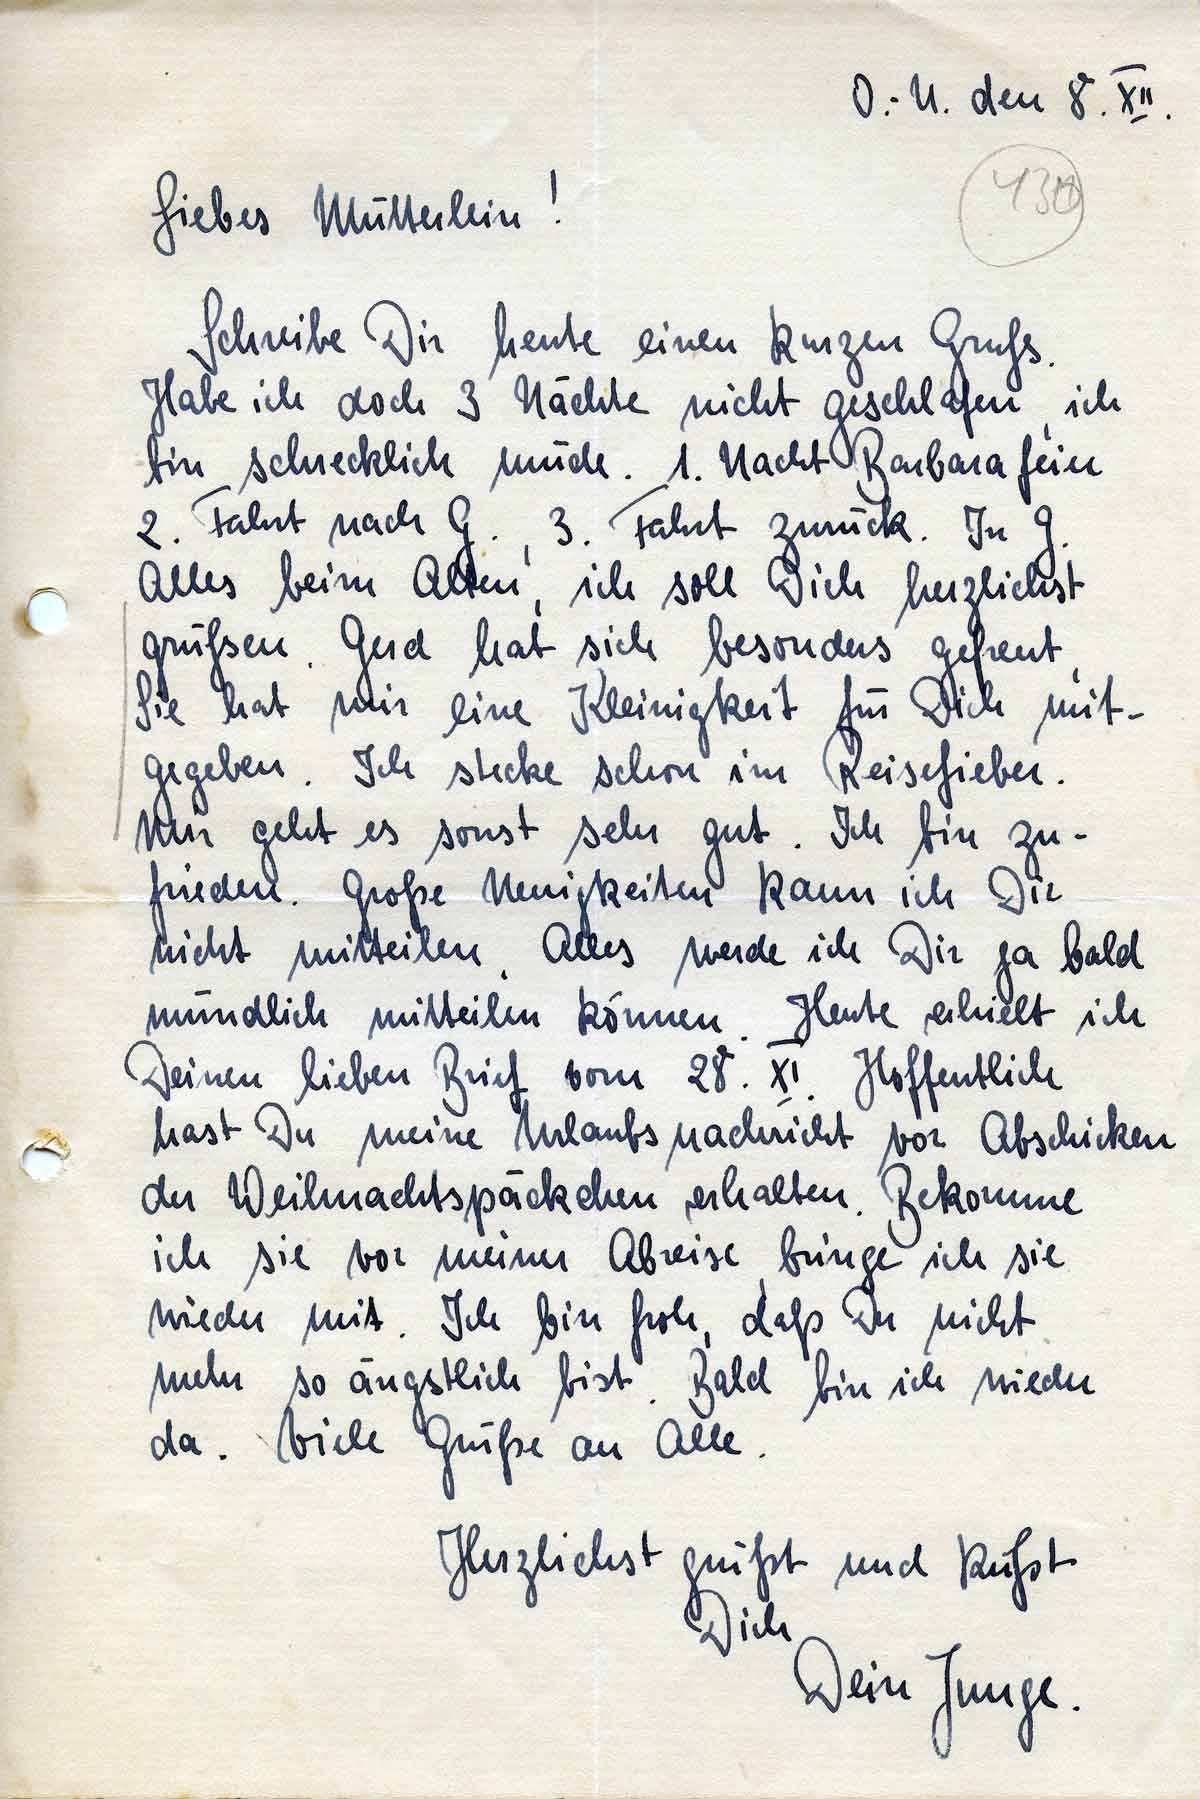 O.-U. den 8. XII.
Liebes Mütterlein!
Schreibe Dir heute einen kurzen Gruß.
Habe ich doch 3 Nächte nicht geschlafen, ich
bin schrecklich müde. 1. Nacht Barbarafeier
2. Fahrt nach G., 3. Fahrt zurück. In G.
Alles beim Alten, ich soll Dich herzlichst
grüßen. Gerd hat sich besonders gefreut,
Sie hat mir eine Kleinigkeit für Dich mit-
gegeben. Ich stecke schon im Reisefieber.
Mir geht es sonst sehr gut. Ich bin zu-
frieden. Große Neuigkeiten kann ich Dir
nicht mitteilen. Alles werde ich Dir ja bald
mündlich mitteilen können. Heute erhielt ich
Deinen lieben Brief vom 28. XI. Hoffentlich
hast Du meine Urlaubsnachricht vor Abschicken
der Weihnachtspäckchen erhalten. Bekomme
ich sie vor meiner Abreise, bringe ich sie
wieder mit. Ich bin froh, daß Du nicht
mehr so ängstlich bist. Bald bin ich wieder
da. Viele Grüße an Alle.
Herzlichst grüßt und küßt
Dich
Dein Junge.